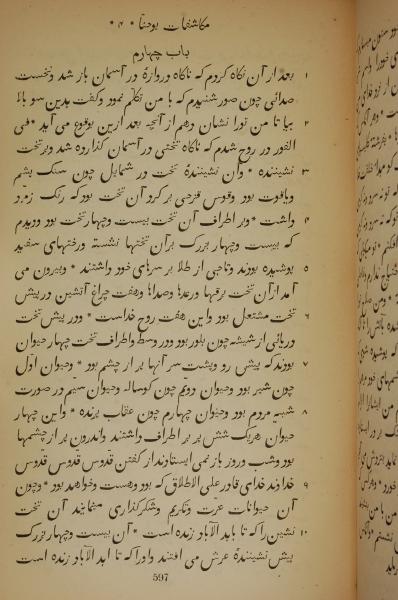 مکاشفات یوحنا * ۴ *
باب چهارم
۱ بعد از آن نگاه کردم که ناگاه دروازهٔ در آسمان باز شد و نخست
صدائی چون صور شنیدم که با من تکلم نمود و گفت بدین سو بالا
۲ بیا تا من تورا نشان دهم از آنچه بعد ازین بوقوع می آید * فی
الفور در روح شدم که ناگاه تختی در آسمان گذارده شد و بر تخت
۳ نشیننده * و آن نشینندهٔ تخت در شمایل چون سنک یشم
و یاقوت بود و قوس قزحی بر گرد آن تخت بود که رنک زمرّد
۴ داشت * و بر اطراف آن تخت بیست و چهار تخت بود و دیدم
که بیست و چهار بزرک بر آن تختها نشسته و رختهای سفید
۵ پوشیده بودند و تاجی از طلا بر سرهای خود داشتند * و بیرون می
آمد از آن تخت برقها و رعدها و صداها و هفت چراغ آتشین در پیش
۶ تخت مشتعل بود و این هفت روح خداست * و در پیش تخت
دریائی از شیشه چون بلور بود و در وسط و اطراف تخت چهار حیوان
۷ بودند که پیش رو و پشت سر آنها پر از چشم بود * و حیوان اوّل
چون شیر بود و حیوان دویّم چون کوساله و حیوان سیّم در صورت
۸ شبیه مردم بود و حیوان چهارم چون عقاب پرنده * و این چهار
حیوان هر یک شش پر بر اطراف داشتند و اندرون پر از چشمها
بود و شب و روز باز نمی ایستادند از گفتن قدّوس قدّوس قدّوس
۹ خداوند خدای قادر علی الاطلاق که بود و هست و خواهد بود * و چون
آن حیوانات عزت و تکریم و شکرگذاری مینمایند آن تخت
۱۰ نشین را که تا بابد الآباد زنده است * آن بیست و چهار بزرک
پیش نشینندهٔ عرش می افتند و اورا که تا ابد الآباد زنده است
597